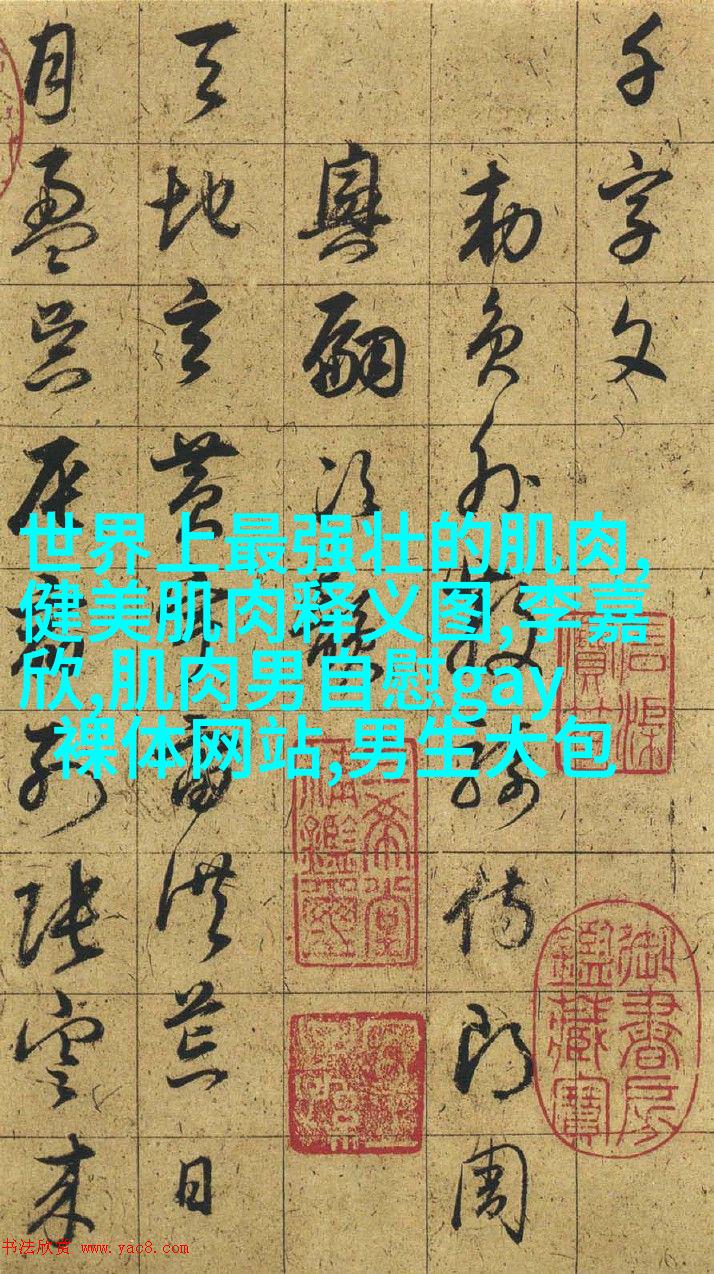 千字文
勅員外散騎侍郎周
興嗣次韻
天地玄黃宇宙洪荒日
月盈昃辰宿列張寒來
世界上最强壮的肌肉,
健美肌肉释义图,李嘉
欣,肌肉男自慰gay
裸体网站,男生大包
三希堂
精鑑璽
御書房
鑑藏寶
书法欣赏 www.yac8.com